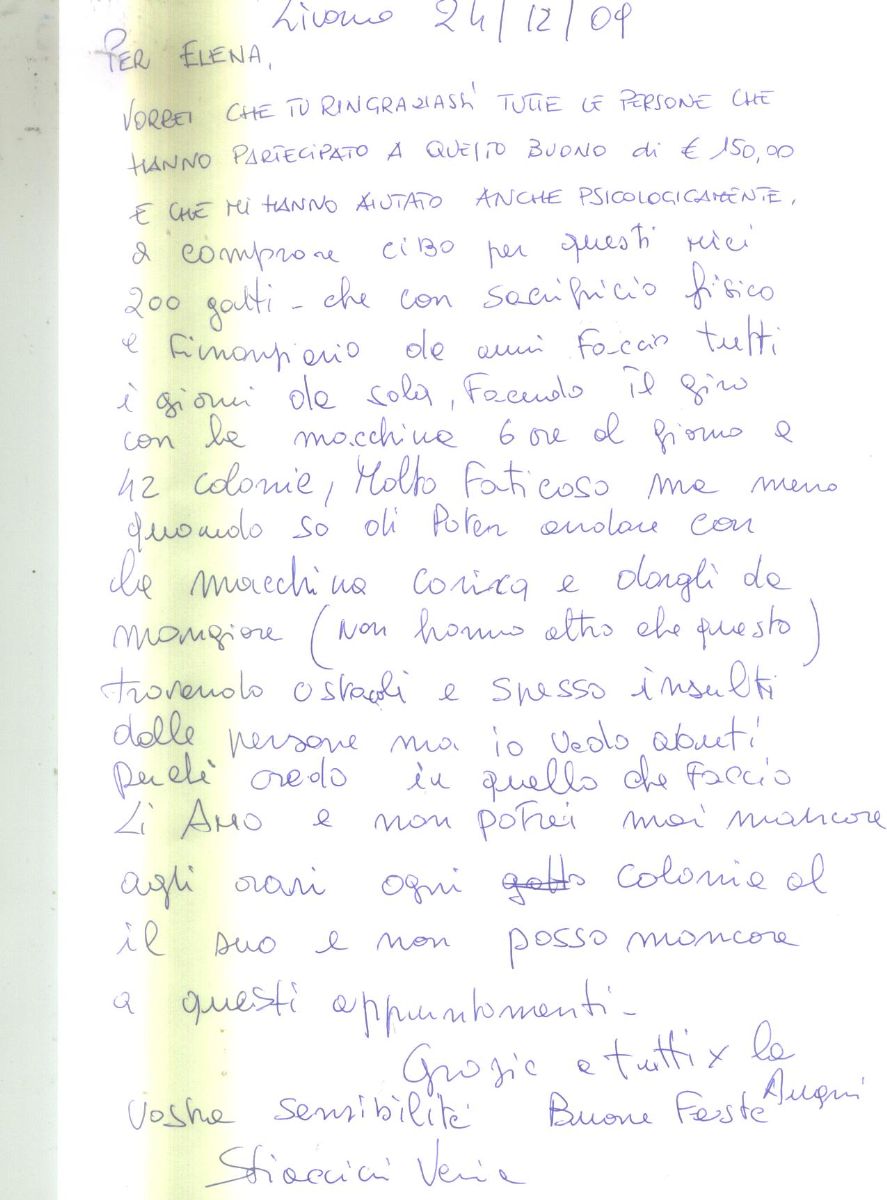 Livorno 24/12/09
PER ELENA,
VORREI CHE TU RINGRAZIASSI TUTTE LE PERSONE CHE
HANNO PARTECIPATO A QUESTO BUONO di € 150,00
E CHE MI HANNO AIUTATO ANCHE PSICOLOGICAMENTE,
a comprare CIBO per questi mici
200 gatti - che con sacrificio fisico
e Finanziario da anni Faccio tutti
i giorni da sola, Facendo il giro
con la macchina 6 ore al giorno a
42 colonie, Molto Faticoso ma meno
quando so di Poter andare con
la macchina carica e dargli da
mangiare (Non hanno altro che questo)
trovando ostacoli e spesso insulti
dalle persone ma io vado avanti
perchè credo in quello che Faccio
Li AMO e non potrei mai mancare
agli orari ogni gatto colonia al
il suo e non posso mancare
a questi appuntamenti -
Grazie a tutti x la
Vostra sensibilità Buone Feste Auguri